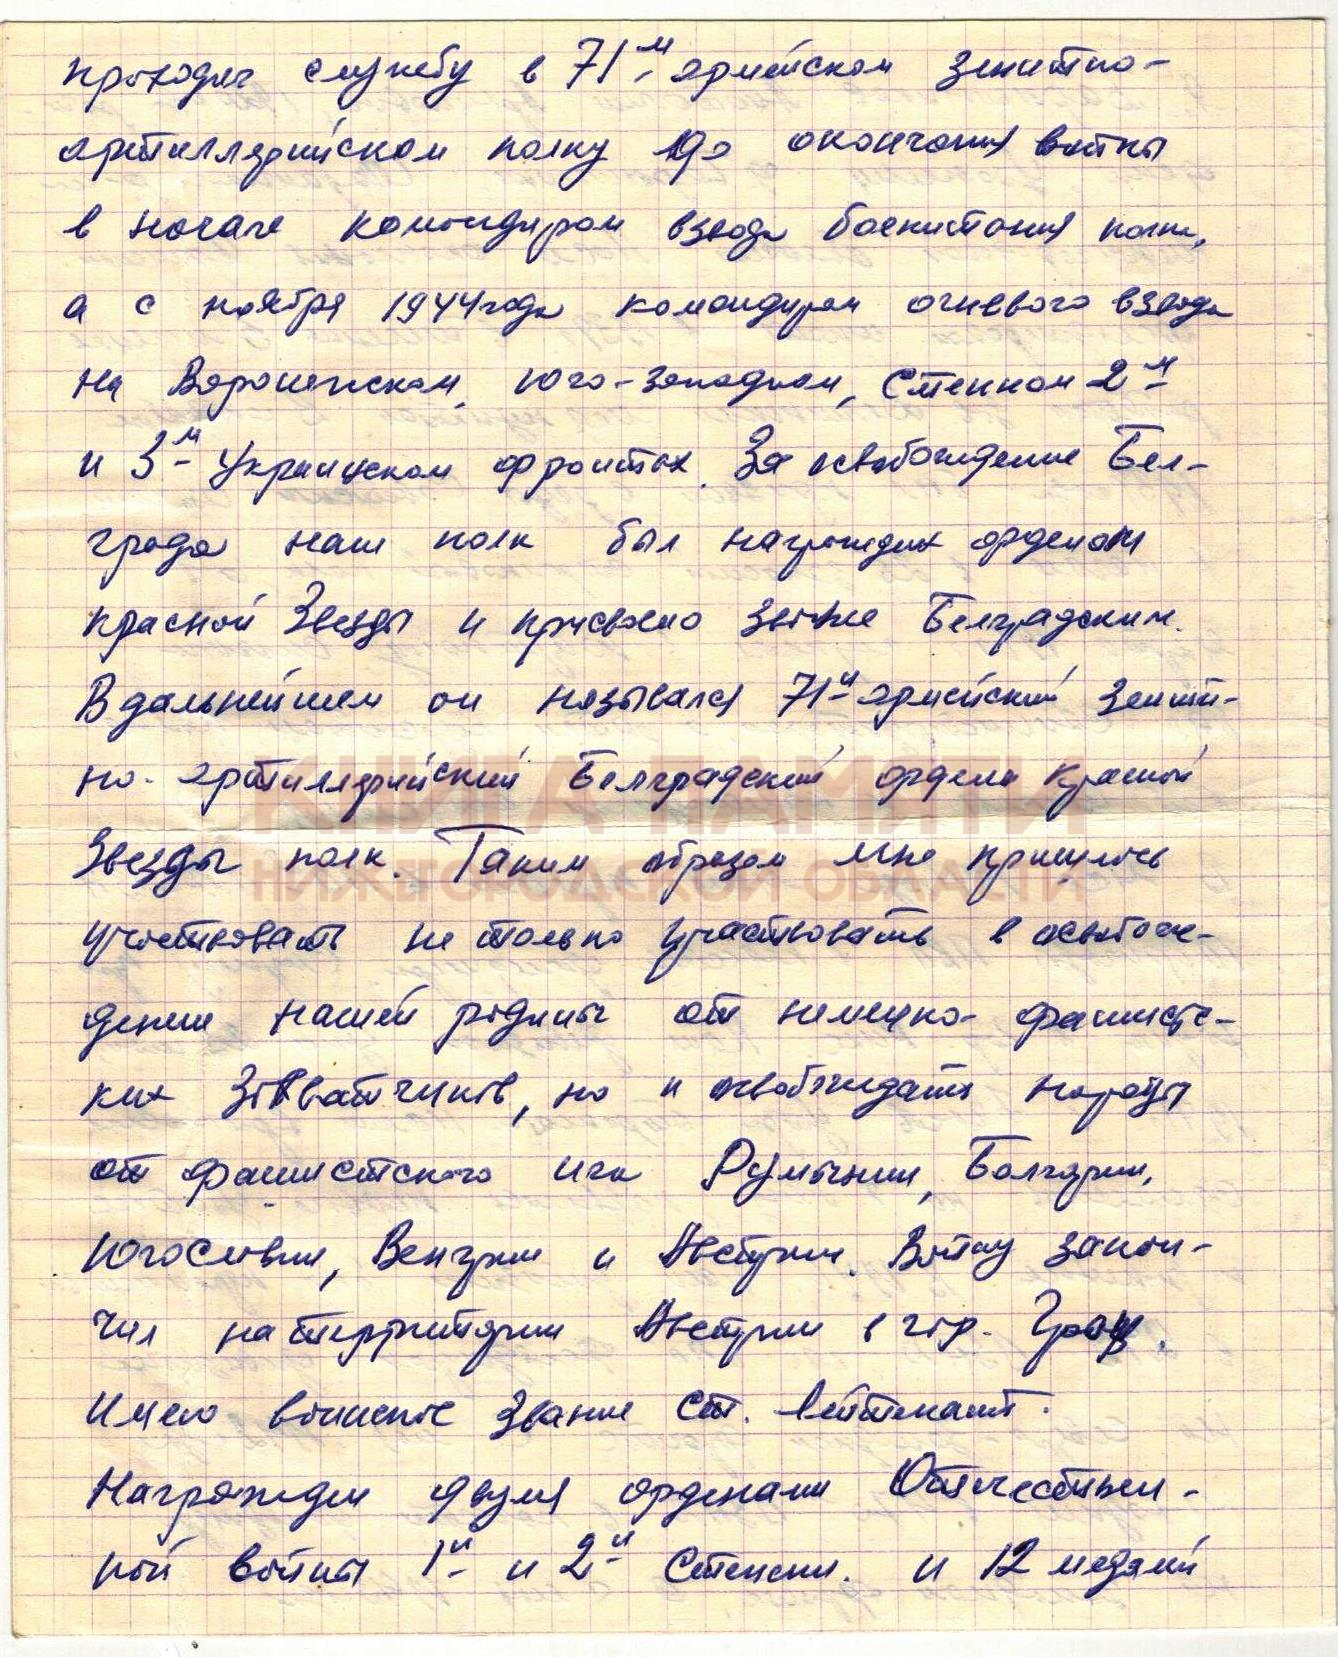 проходил службу в 71м армейском зенитно-
артиллерийском полку до окончания войны
в начале командиром взвода боепитания полка,
а с ноября 1944 года командиром огневого взвода
на Воронежском, Юго-западном, Степном 2м
и 3м Украинском фронтах. За освобождение Бел-
града наш полк был награжден орденом
красной Звезды и присвоено звание Белградским.
В дальнейшем он назывался 71й армейский зенит-
но-артиллерийский Белградский ордена Красной
КНИГА ПАМЯТИ
Звезды полк. Таким образом мне пришлось
НИЖЕГОРОДСКОЙ ОБЛАСТИ
участвовать не только участвовать в освобож-
дении нашей родины от немецко-фашистс-
ких захватчиков, но и освобождать народы
от фашистского ига Румынии, Болгарии,
Югославии, Венгрии и Австрии. Войну закон-
чил на территории Австрии в гор. Грац.
Имею воинское звание ст. лейтенант.
Награжден двумя орденами Отечествен-
ной войны 1й и 2й степени. и 12 медалей